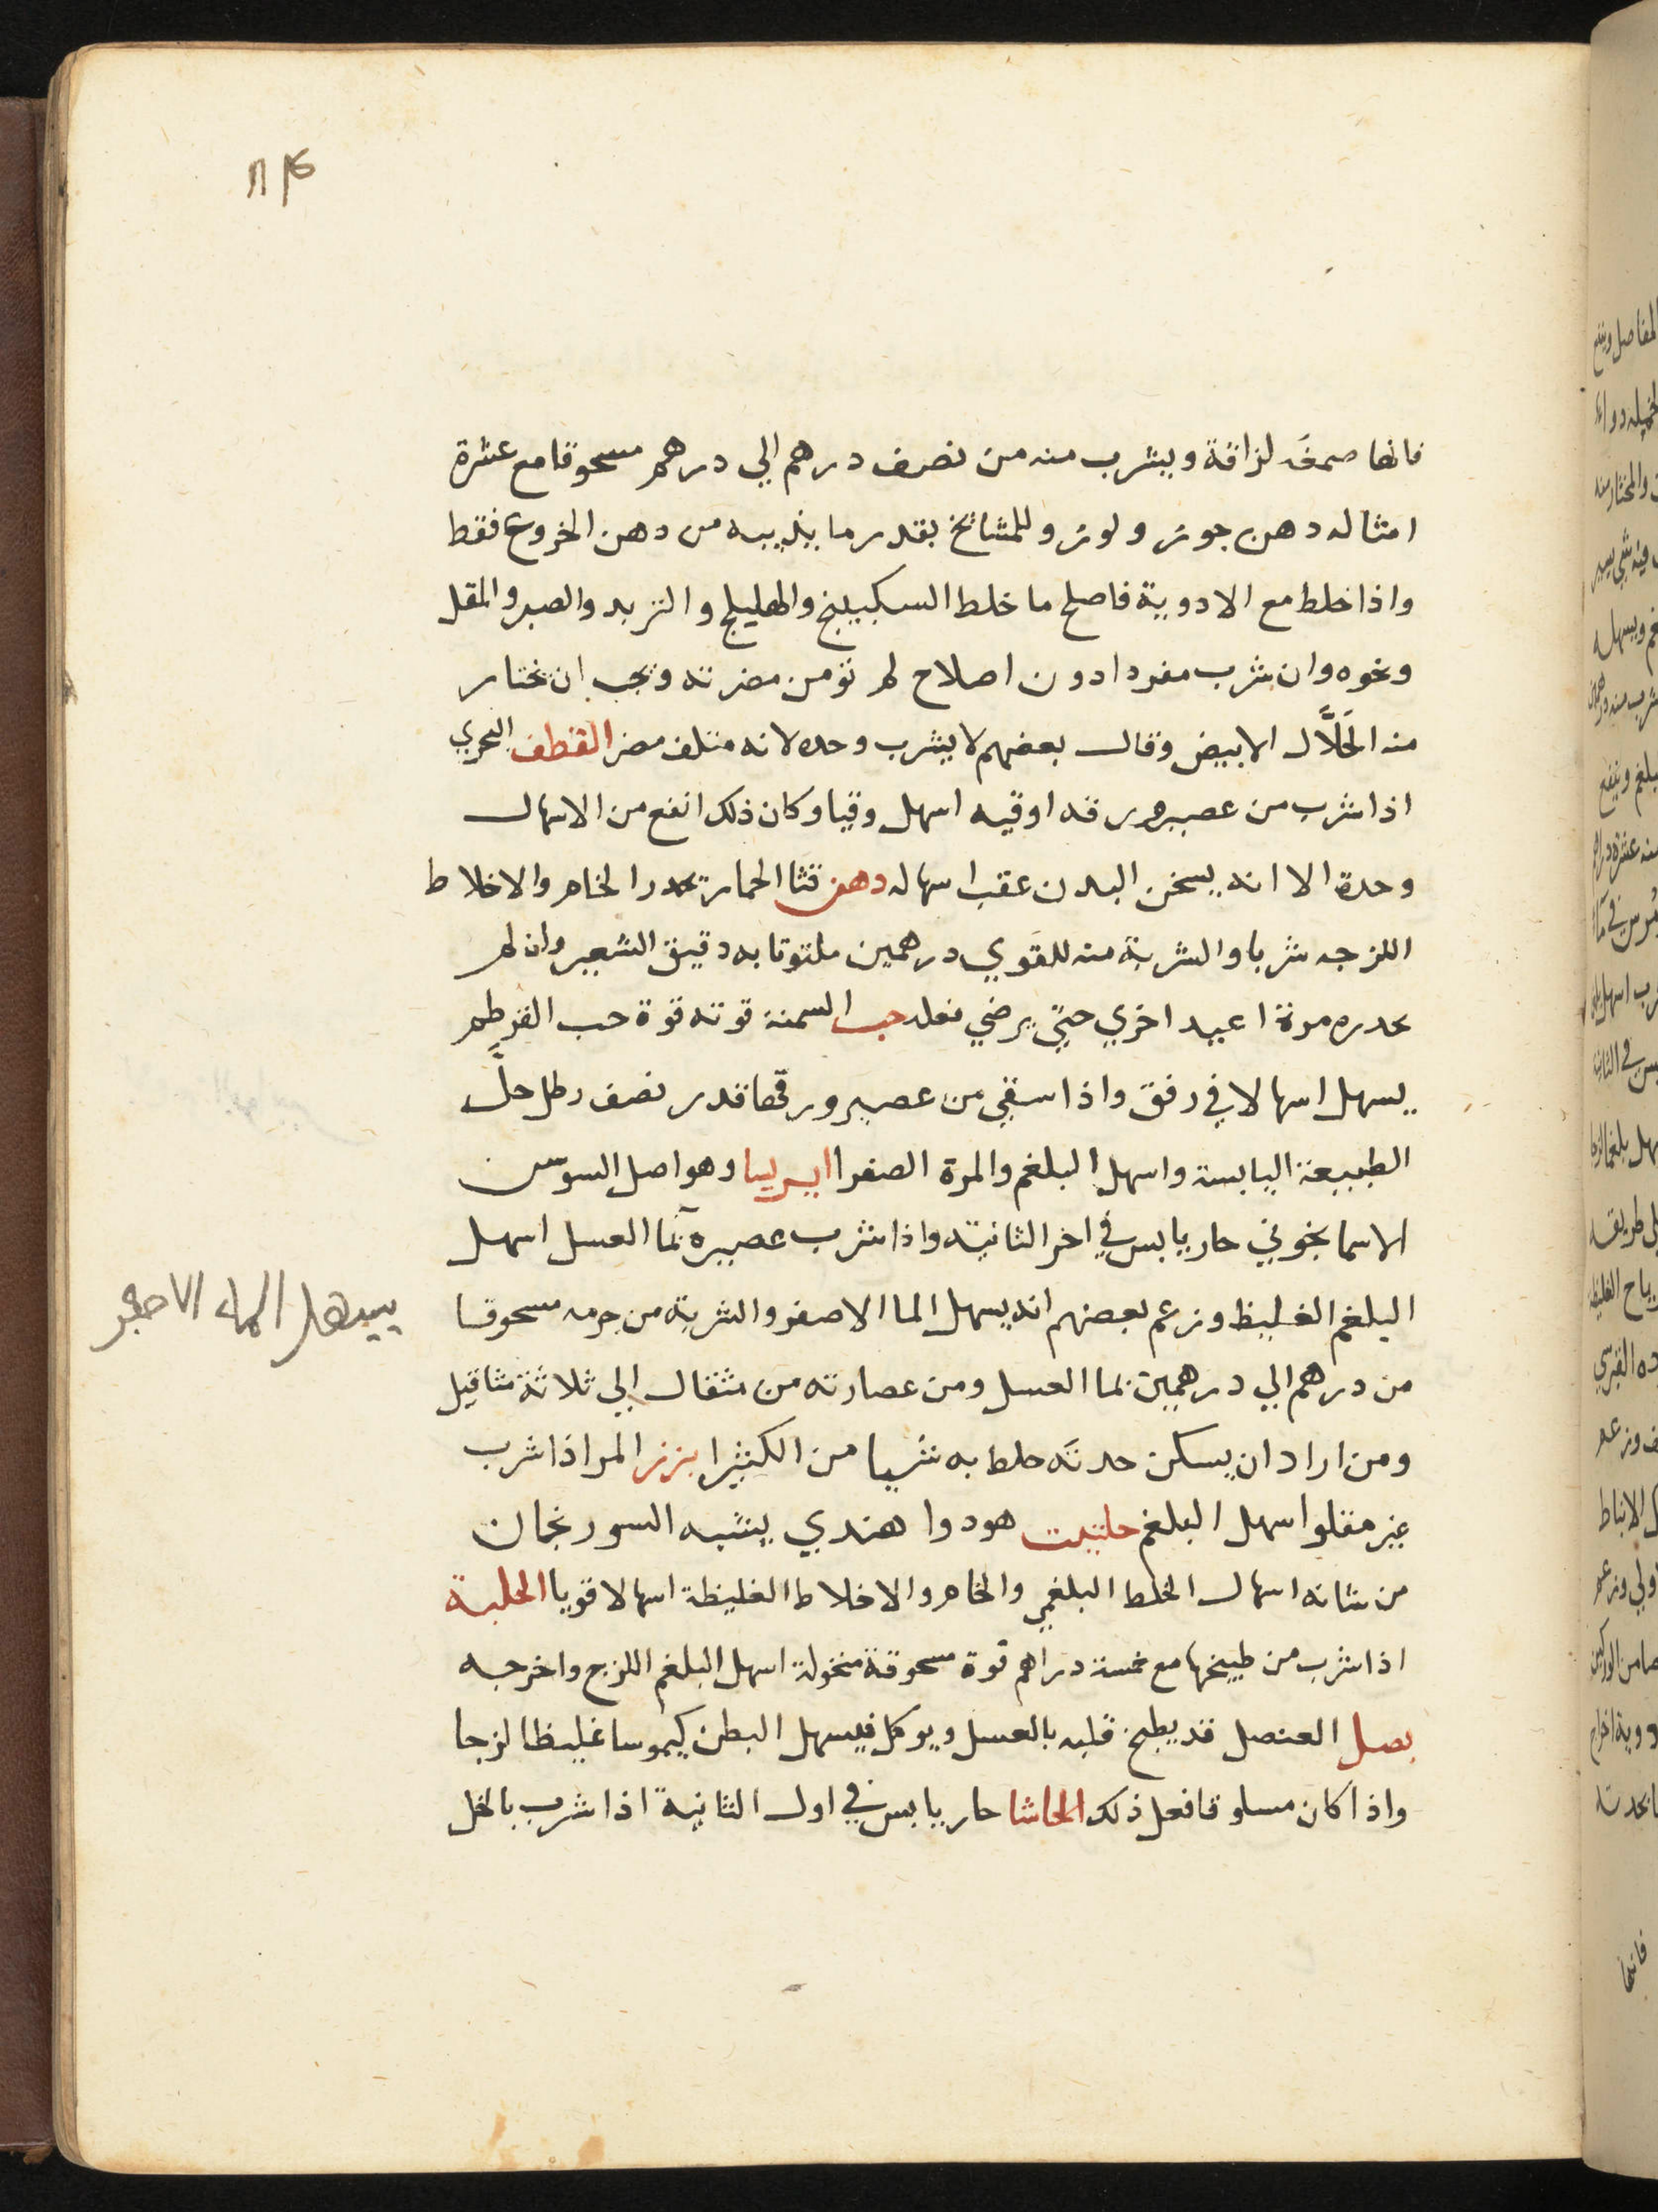 فانها صمغه لزاقة ويشرب منه من نصف درهم الي درهم مسحوقا مع عشرة
امثاله دهن جوز ولوز وللمشائخ بقدر ما يذيبه من دهن الخروع فقط
واذا خلط مع الادوية فاصلح ما خلط السكبينج والهليلج والتربد والصبر والمقل
ونحوه وان شرب مفردا دون اصلاح لم تؤمن مضرته ويجب ان تختار
منه الحَلَّال الابيض وقال بعضهم لا يشرب وحده لانه متلف مضر القطف البحري
اذا شرب من عصير ورقه اوقيه اسهل وقيا وكان ذلك انفع من الاسهال
وحدة الا انه يسخن البدن عقب اسهاله دهن قثا الحمار تحدر الخام والاخلاط
اللزجه شربا والشربة منه للقوي درهمين ملتوتا به دقيق الشعير وان لم
تحدره مرة اعيد اخري حتي يرضي فعله حب السمنة قوته قوة حب القرطم
يسهل اسهالا في رفق واذا سقي من عصير ورقها قدر نصف رطل حلَّ
الطبيعة اليابسة واسهل البلغم والمرة الصفرا ايريسا وهو اصل السوسن
الاسمانجوني حار يابس في اخر الثانية واذا شرب عصيره بمآ العسل اسهل
البلغم الغليظ وزعم بعضهم انه يسهل الما الاصفر والشربة من جرمه مسحوقا
يسهل الماء الاصفر
من درهم الي درهمين بما العسل ومن عصارته من مثقال الي ثلاثة مثاقيل
ومن اراد ان يسكن حدته خلط به شيا من الكثيرا بزر المر اذا شرب
غير مقلو اسهل البلغم حلتيت هو دوا هندي يشبه السورنجان
من شانه اسهال الخلط البلغمي والخام والاخلاط الغليظة اسهالا قويا الحلبة
اذا شرب من طبيخها مع خمسة دراهم فوة مسحوقة منخولة اسهل البلغم اللزج واخرجه
بصل العنصل قد يطبخ قلبه بالعسل ويوكل فيسهل البطن كيموسا غليظا لزجا
واذا كان مسلوقا فعل ذلك الحاشا حار يابس في اول الثانية اذا شرب بالخل